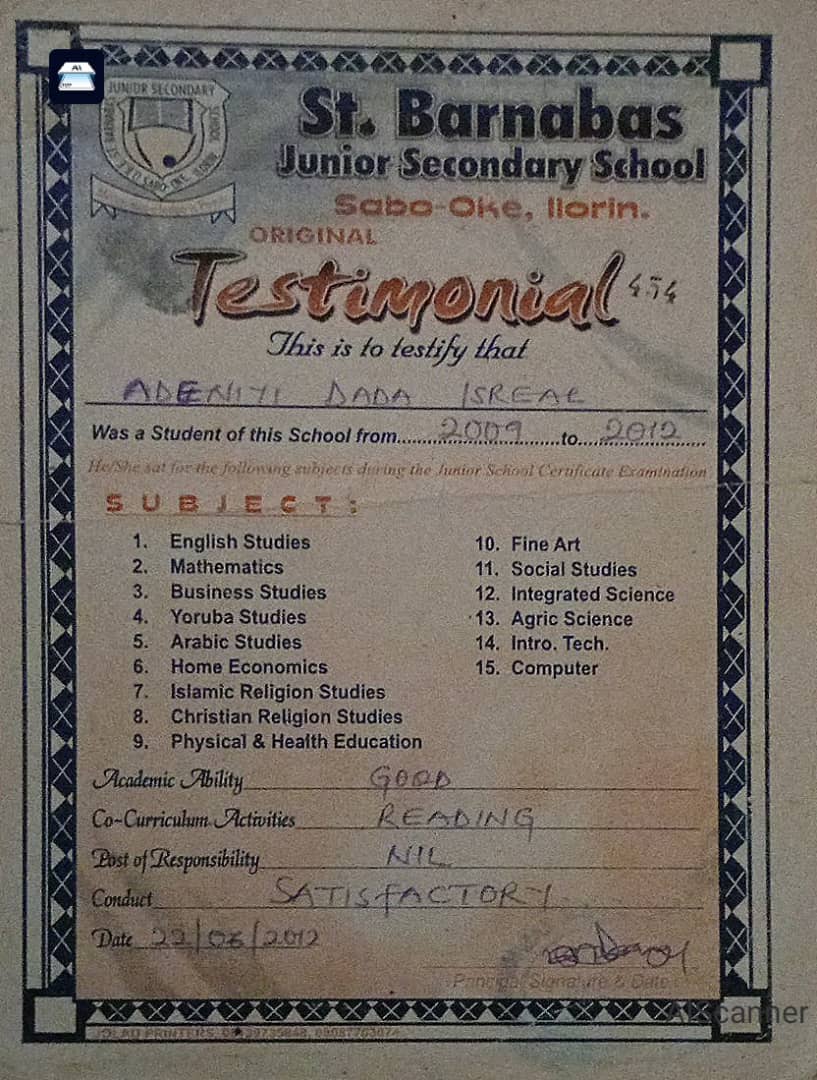 JUNIOR SECONDARY
St. Barnabas
Junior Secondary School
Sabo-Oke, Ilorin.
ORIGINAL
Testimonial 454
This is to testify that
ADENIYI DADA ISREAL
Was a Student of this School from..........2009..........to.....2012.....
He/She sat for the following subjects during the Junior School Certificate Examination
SUBJECT:
1. English Studies
2. Mathematics
3. Business Studies
4. Yoruba Studies
5. Arabic Studies
6. Home Economics
7. Islamic Religion Studies
8. Christian Religion Studies
9. Physical & Health Education
10. Fine Art
11. Social Studies
12. Integrated Science
13. Agric Science
14. Intro. Tech.
15. Computer
Academic Ability GOOD
Co-Curriculum Activities READING
Post of Responsibility NIL
Conduct SATISFACTORY
Date 22/06/2012
Principal Signature & Date
AIScanner
JOLAD PRINTERS: